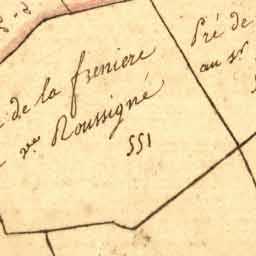 de la freniere
vve Roussigné
551
Pré de
au sr.